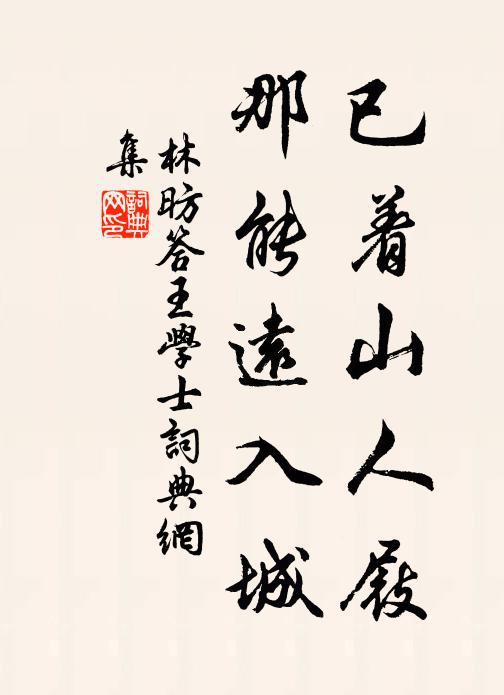 已着山人屐
那能遠入城
林昉答王學士詞典網
集
詞典網印